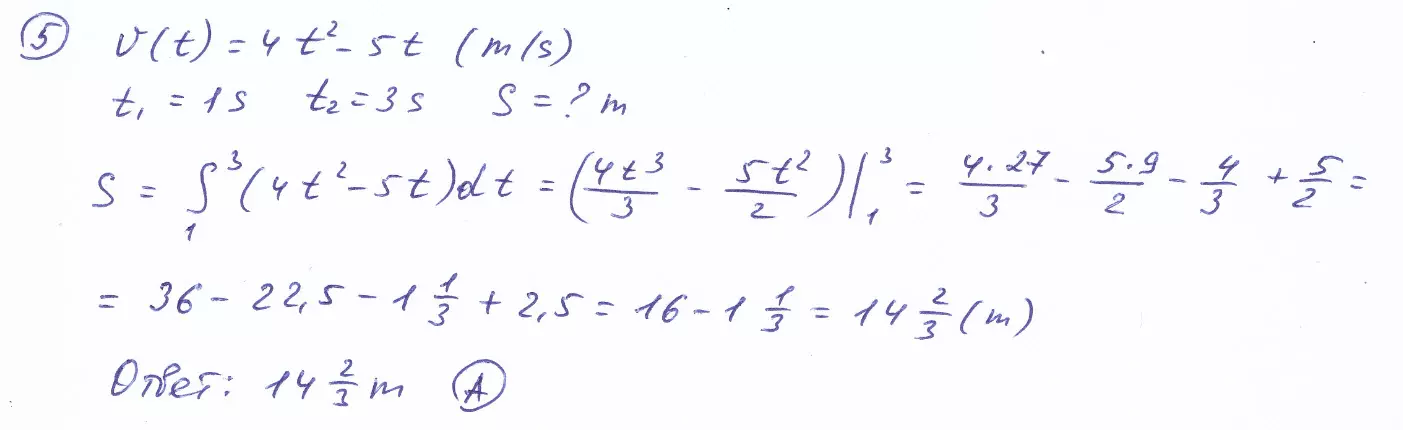 ⑤ v(t) = 4t² - 5t (m/s)
t₁ = 1s t₂ = 3s S = ? m
S = ∫₁³ (4t² - 5t)dt = (4t³/3 - 5t²/2)|₁³ = 4·27/3 - 5·9/2 - 4/3 + 5/2 =
= 36 - 22,5 - 1 1/3 + 2,5 = 16 - 1 1/3 = 14 2/3 (m)
Ответ: 14 2/3 m Ⓐ